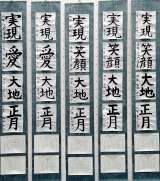 実現 笑顔 大地 正月
実現 笑顔 大地 正月
実現 笑顔 大地 正月
実現 愛 大地 正月
実現 愛 大地 正月